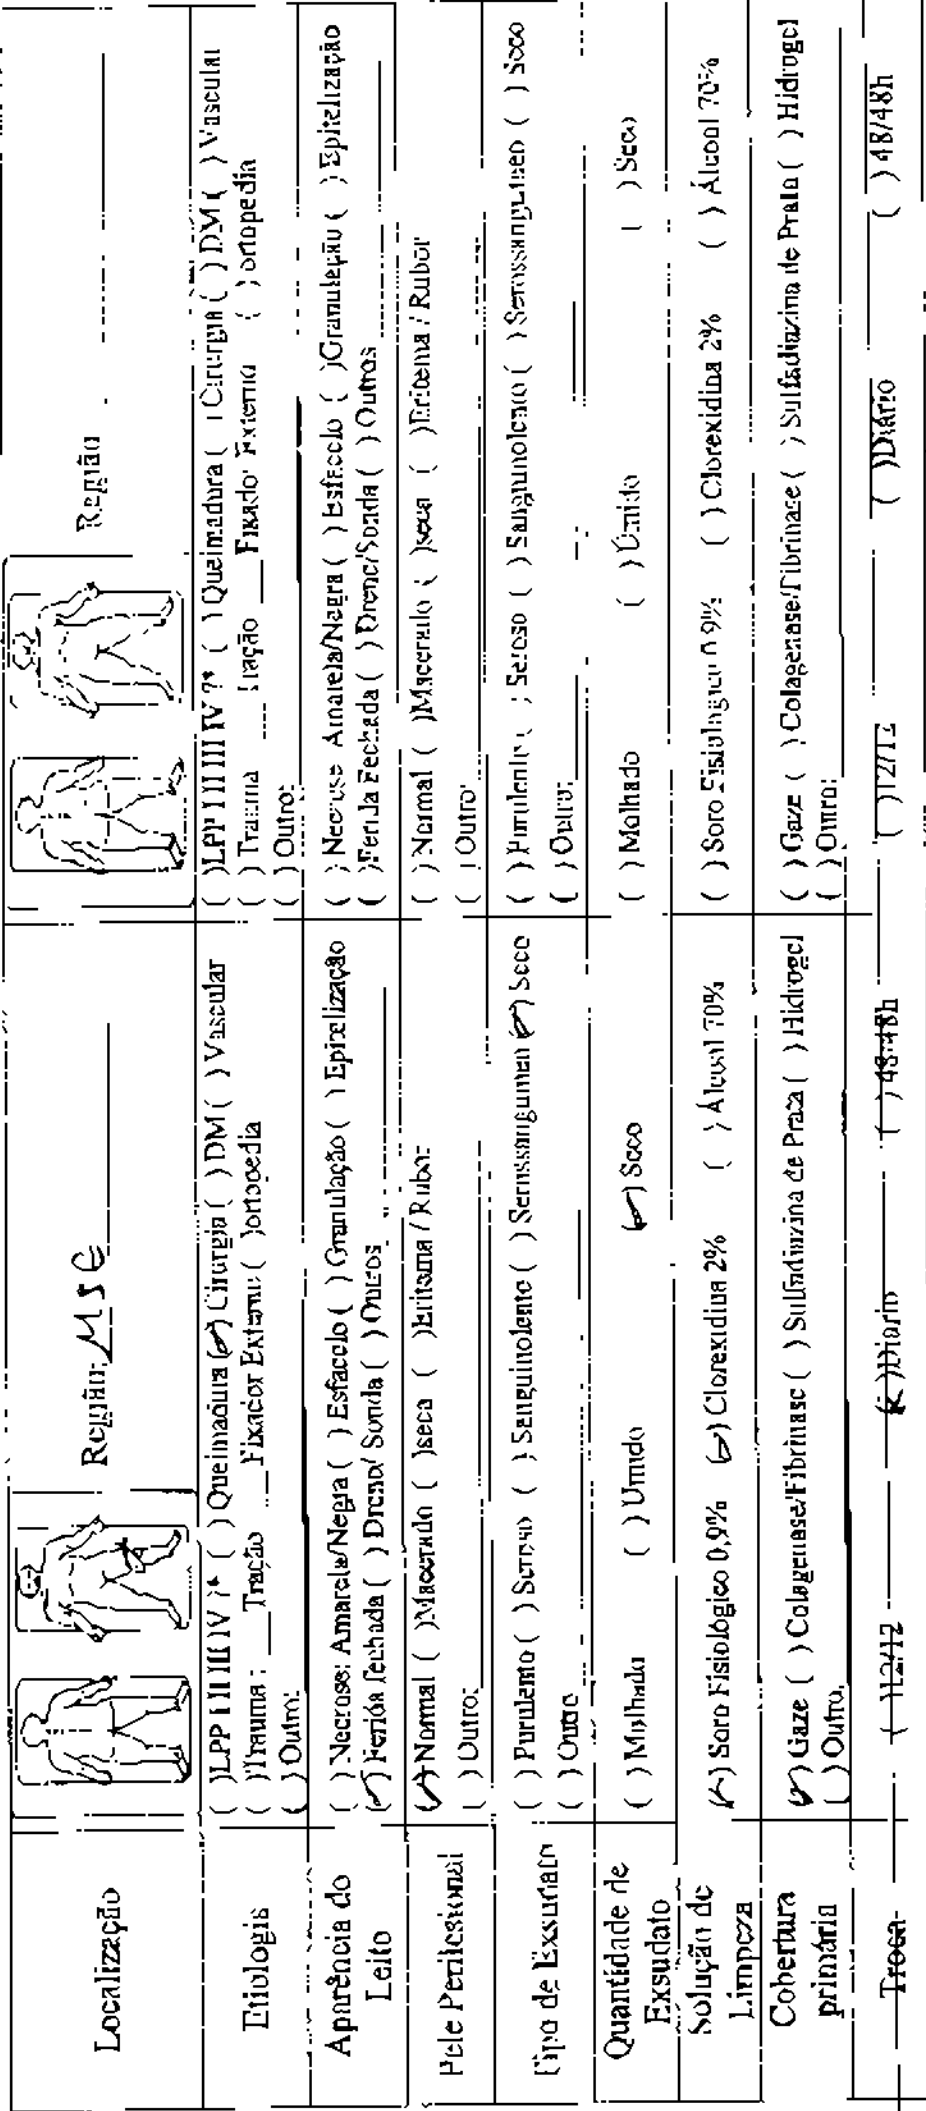 Localização
Região: MSE
Região
Etiologia
( )LPP I II III IV ?* ( ) Queimadura (✓) Cirurgia ( ) DM ( ) Vascular
( )Trauma : ___ Tração ___ Fixador Externo ( )ortopedia
( ) Outro:
( )LPP I II III IV ?* ( ) Queimadura ( ) Cirurgia ( ) DM ( ) Vascular
( ) Trauma ___ Tração ___ Fixador Externo ( ) ortopedia
( ) Outro:
Aparência do
Leito
( ) Necrose: Amarela/Negra ( ) Esfacelo ( ) Granulação ( ) Epitelização
(✓) Ferida fechada ( ) Dreno/ Sonda ( ) Outros
( ) Necrose Amarela/Negra ( ) Esfacelo ( )Granulação ( ) Epitelização
( )Ferida Fechada ( ) Dreno/Sonda ( ) Outros
Pele Perilesional
(✓) Normal ( )Macerado ( )seca ( )Eritema / Rubor
( ) Outro:
( ) Normal ( )Macerado ( )seca ( )Eritema / Rubor
( ) Outro:
Tipo de Exsudato
( ) Purulento ( ) Seroso ( ) Sanguinolento ( ) Serossanguineo (✓) Seco
( ) Outro
( ) Purulento ( ) Seroso ( ) Sanguinolento ( ) Serossanguineo ( ) Seco
( ) Outro:
Quantidade de
Exsudato
( ) Molhado ( ) Umido (✓) Seco
( ) Molhado ( ) Úmido ( ) Seco
Solução de
Limpeza
(✓) Soro Fisiológico 0,9% (✓) Clorexidina 2% ( ) Álcool 70%
( ) Soro Fisiológico 0.9% ( ) Clorexidina 2% ( ) Álcool 70%
Cobertura
primária
(✓) Gaze ( ) Colagenase/Fibrinase ( ) Sulfadiazina de Prata ( ) Hidrogel
( ) Outro:
( ) Gaze ( ) Colagenase/Fibrinase ( ) Sulfadiazina de Prata ( ) Hidrogel
( ) Outro:
Troca
( )12/12 (x)Diario ( ) 48/48h
( )12/12 ( )Diário ( ) 48/48h